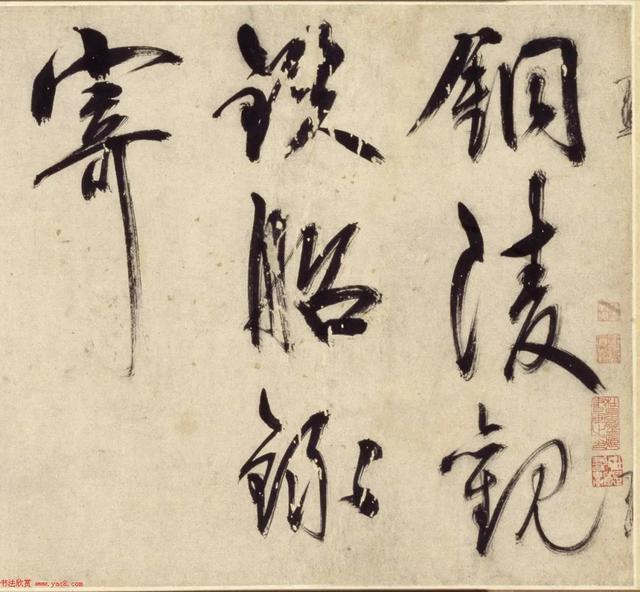 銅陵觀
鐵船錄
寄
书法欣赏 www.yac8.com